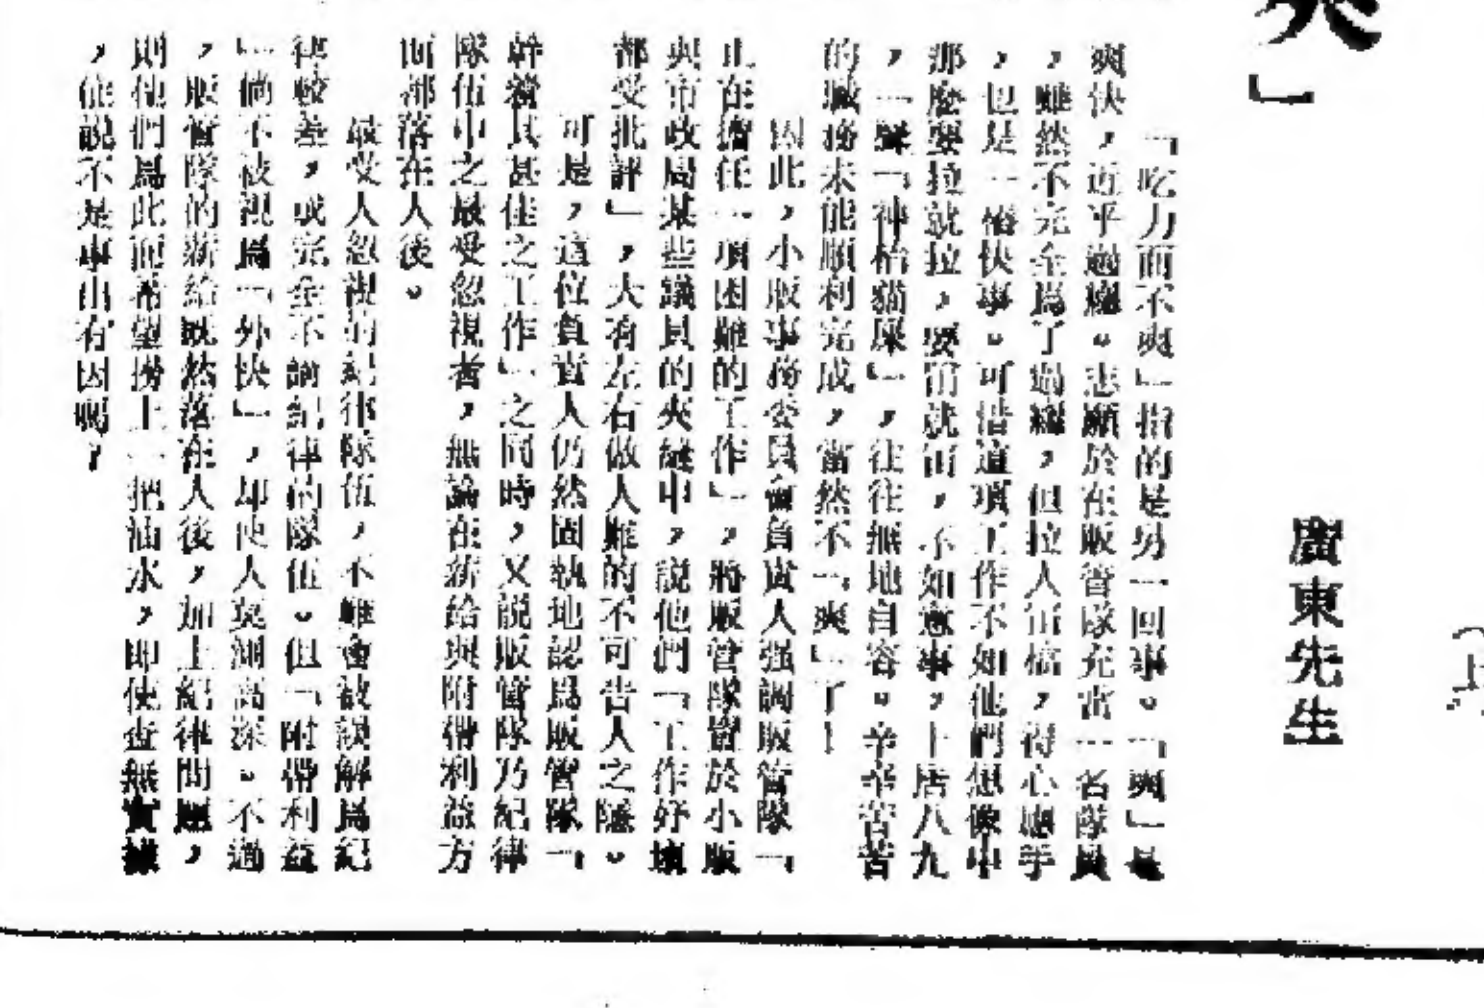 爽
」
廣東先生
「吃力而不爽」指的是另一回事。「爽」是
爽快,近乎過癮。志願於在販管隊充當一名隊員
,雖然不完全爲了過癮,但拉人留檔,得心應手
,也是一樁快事。可惜這項工作不如他們想像中
那麼要拉就拉,要留就留,不如意事,十居八九
,一聲「神枱貓屎」,往往無地自容。辛辛苦苦
的職務未能順利完成,當然不「爽」了!
因此,小販事務委員會負責人强調販管隊「
正在擔任一項困難的工作」,將販管隊置於小販
與市政局某些議員的夾縫中,説他們「工作好壞
都受批評」,大有左右做人難的不可告人之隱。
可是,這位負責人仍然固執地認爲販管隊「
幹着其甚佳之工作」之同時,又説販管隊乃紀律
隊伍中之最受忽視者,無論在薪給與附帶利益方
面都落在人後。
最受人忽視的紀律隊伍,不難會被誤解爲紀
律較差,或完全不講紀律的隊伍。但「附帶利益
」倘不被視爲「外快」,却使人莫測高深。不過
,販管隊的薪給既然落在人後,加上紀律問題,
則他們爲此而希望撈上一把油水,即使查無實據
,能説不是事出有因嗎?